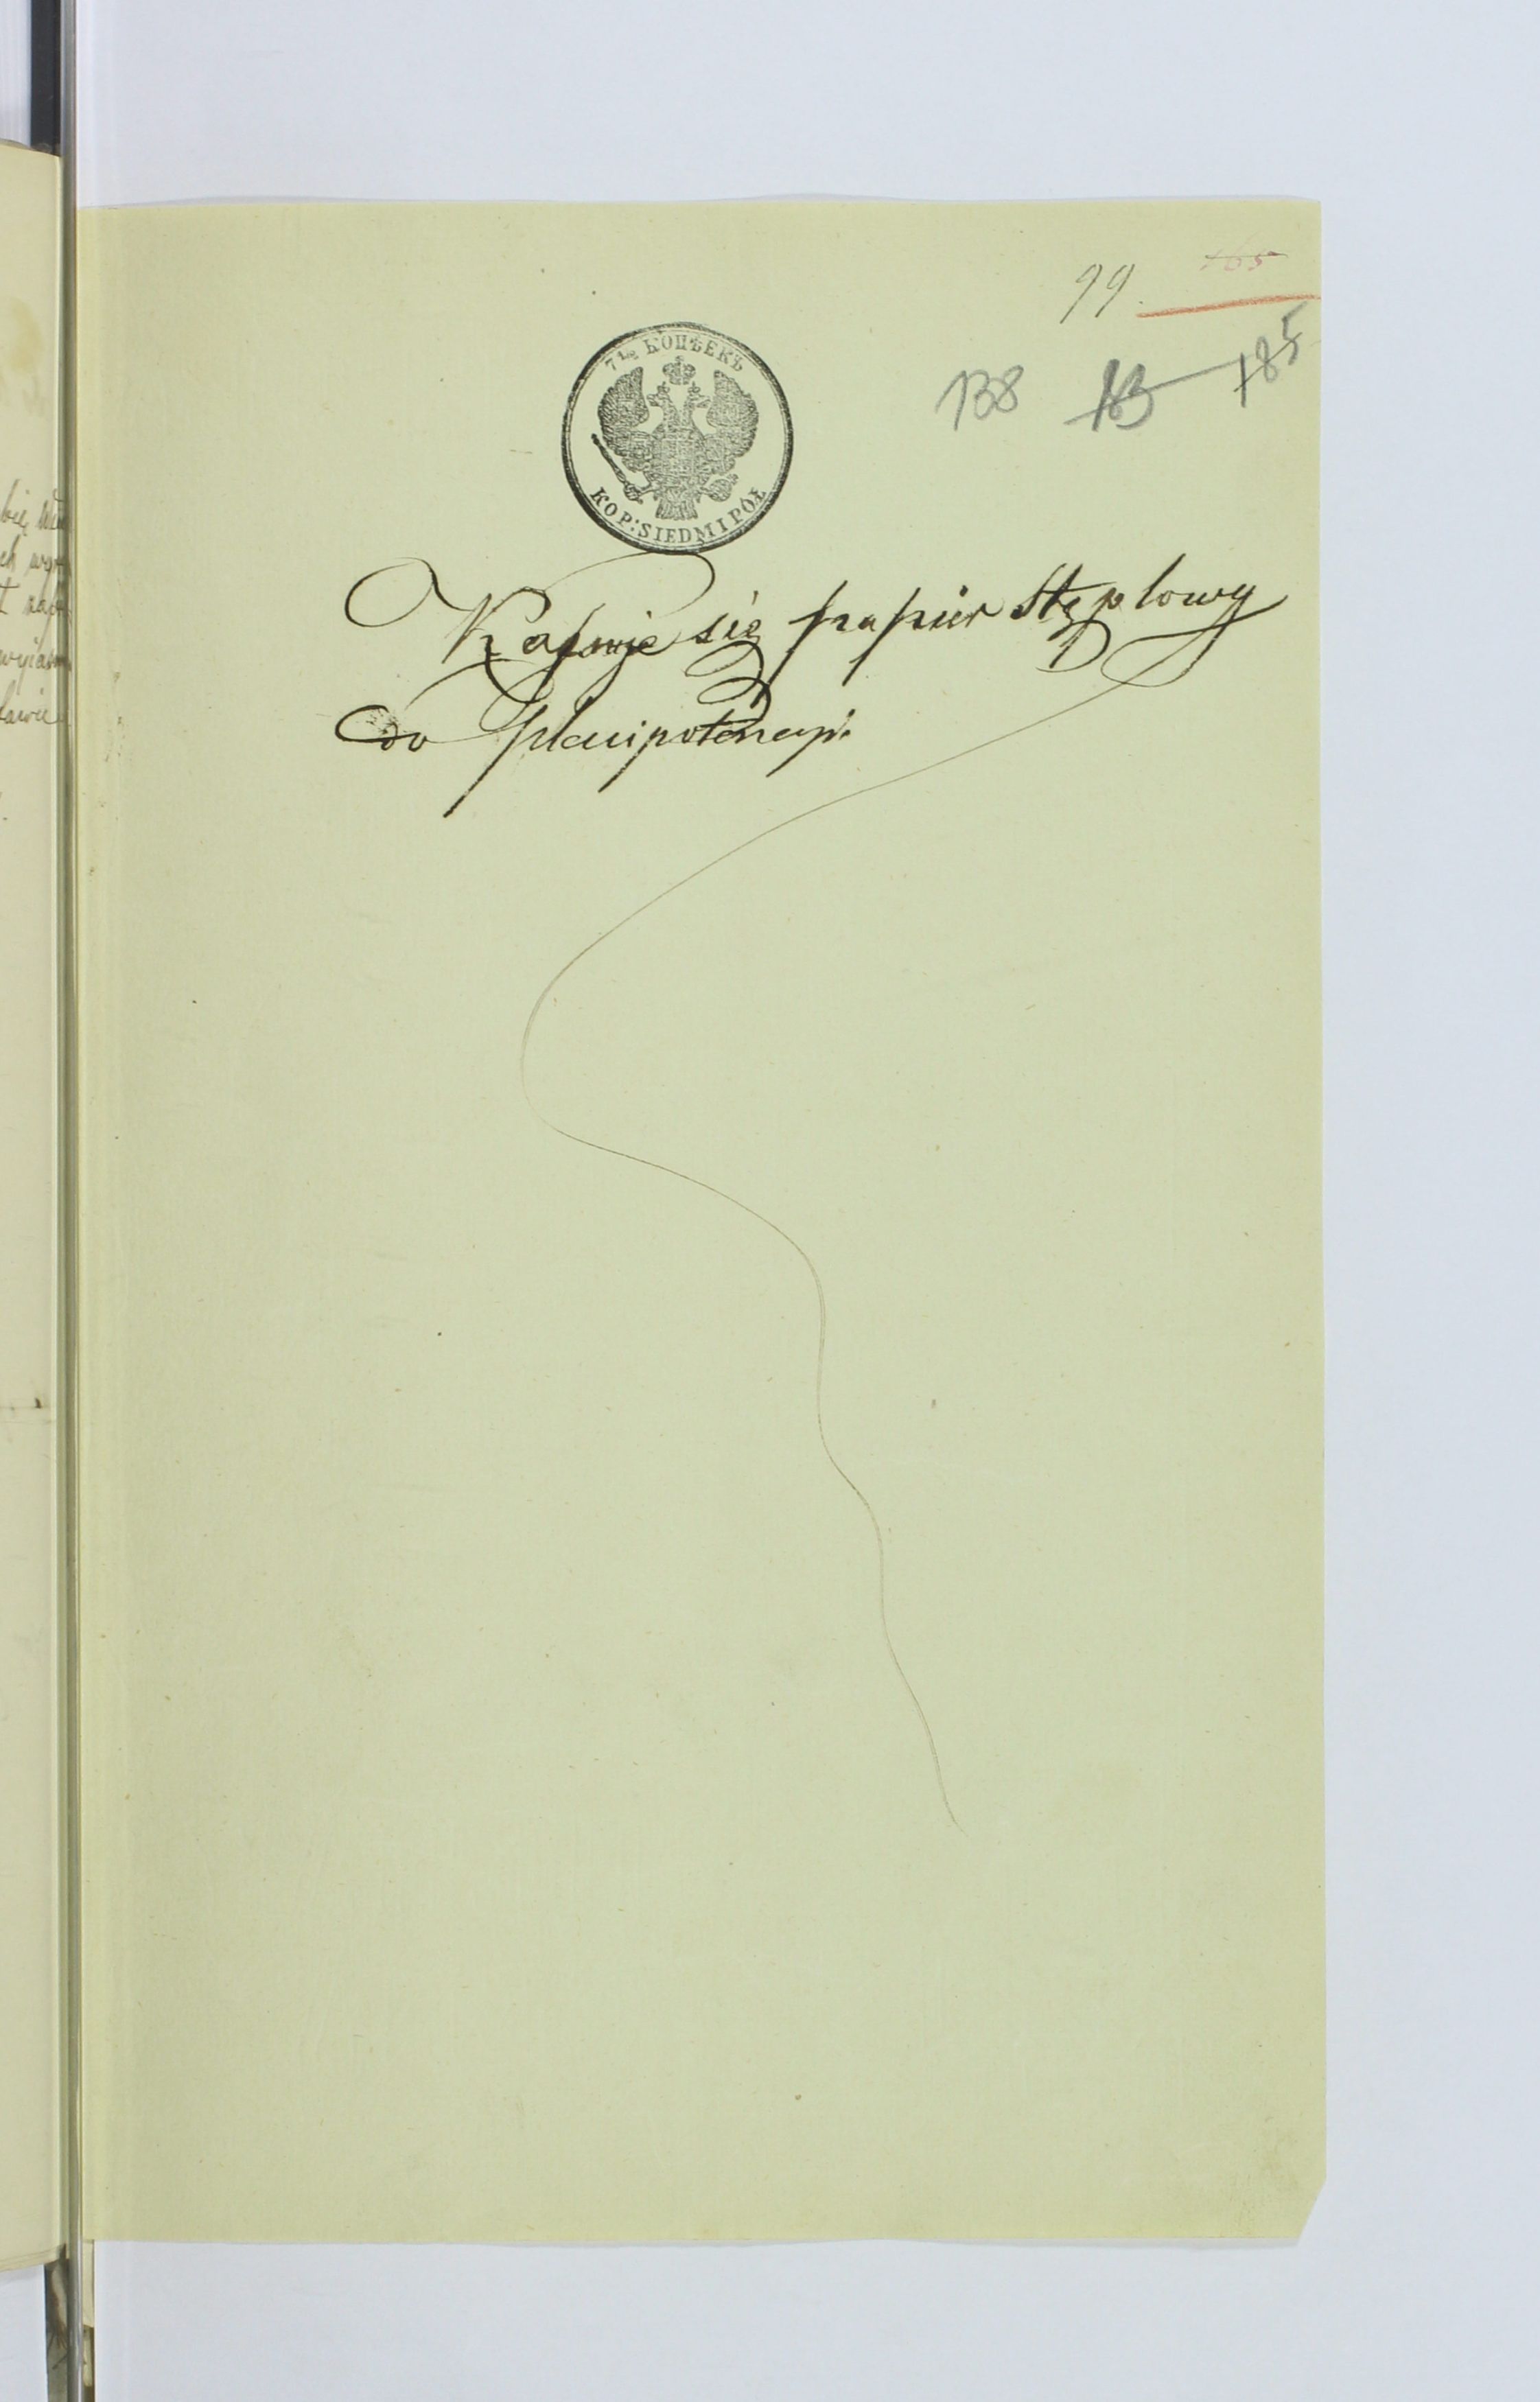 165
99.
185
138 163
7½ КОПѢЕКЪ
KOP: SIEDMIPÓŁ
Kassuje się papier Stęplowy
do plenipotencyi.